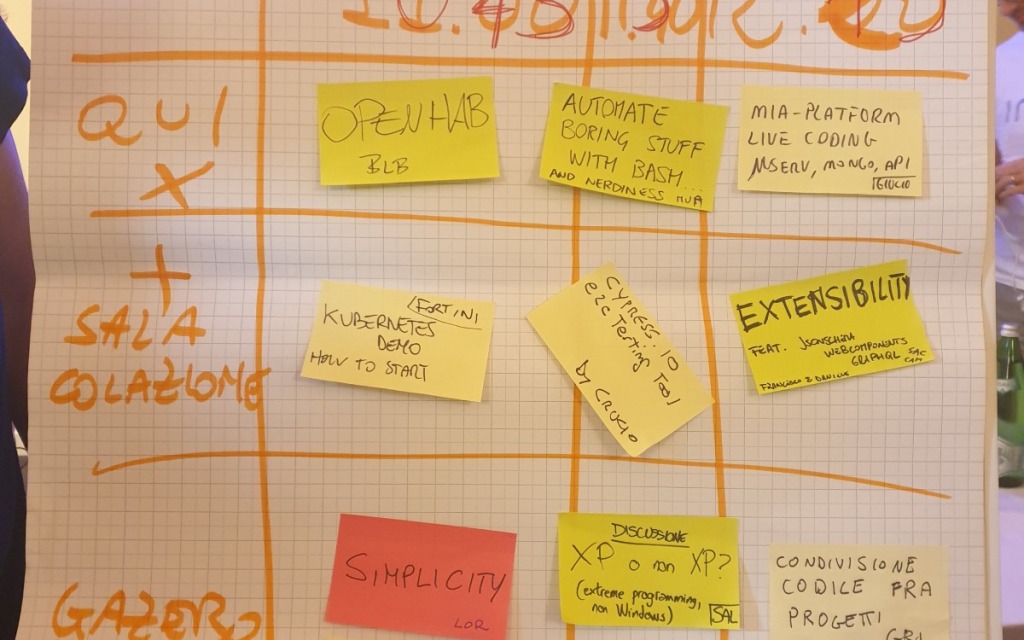 QUI
X
OPENHAB
BLB
AUTOMATE
BORING STUFF
WITH BASH...
AND NERDINESS
MIA-PLATFORM
LIVE CODING
MSERV, MONGO, API
+
SALA
COLAZIONE
FORTINI
KUBERNETES
DEMO
HOW TO START
CYPRESS: IO
e2e Testing Tool
by CRUCIO
EXTENSIBILITY
FEAT. JSONSCHEMA
WEBCOMPONENTS
GRAPHQL
FRANCESCO E DANILO
GAZEBO
SIMPLICITY
LOR
DISCUSSIONE
XP o non XP?
(extreme programming,
non Windows)
SAL
CONDIVISIONE
CODICE FRA
PROGETTI